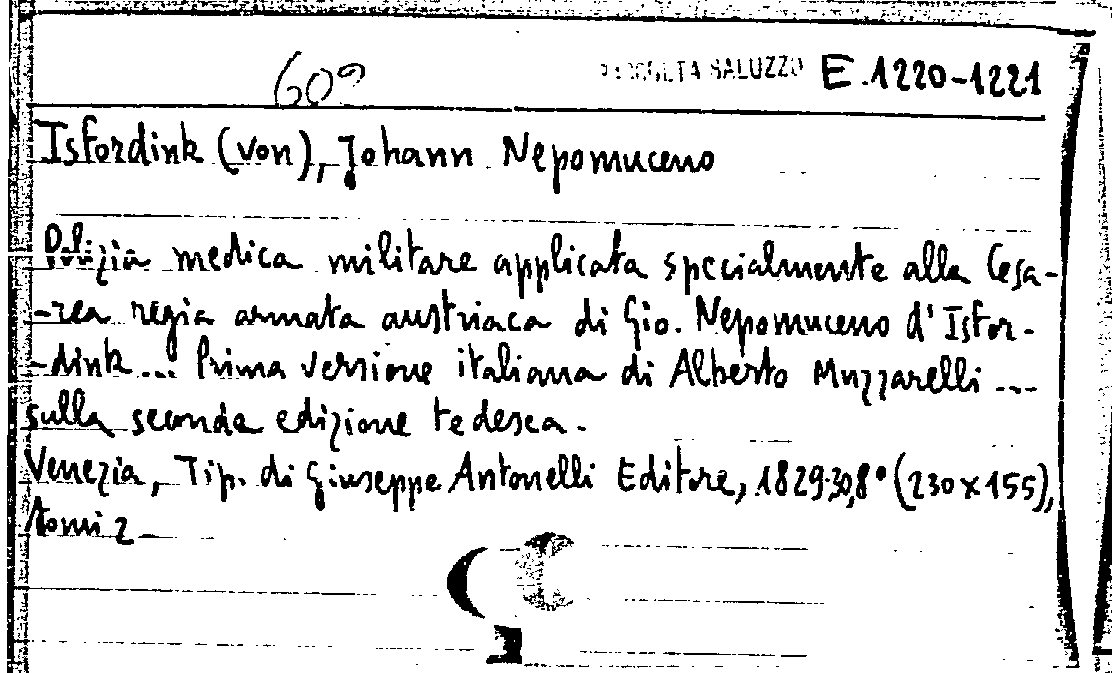 609 RACCOLTA SALUZZO E.1220-1221
Isfordink (von), Johann Nepomuceno
Polizia medica militare applicata specialmente alla Cesa-
-rea regia armata austriaca di Gio. Nepomuceno d'Isfor-
-dink... Prima versione italiana di Alberto Muzzarelli ...
sulla seconda edizione tedesca.
Venezia, Tip. di Giuseppe Antonelli Editore, 1829-30, 8° (230x155),
tomi 2